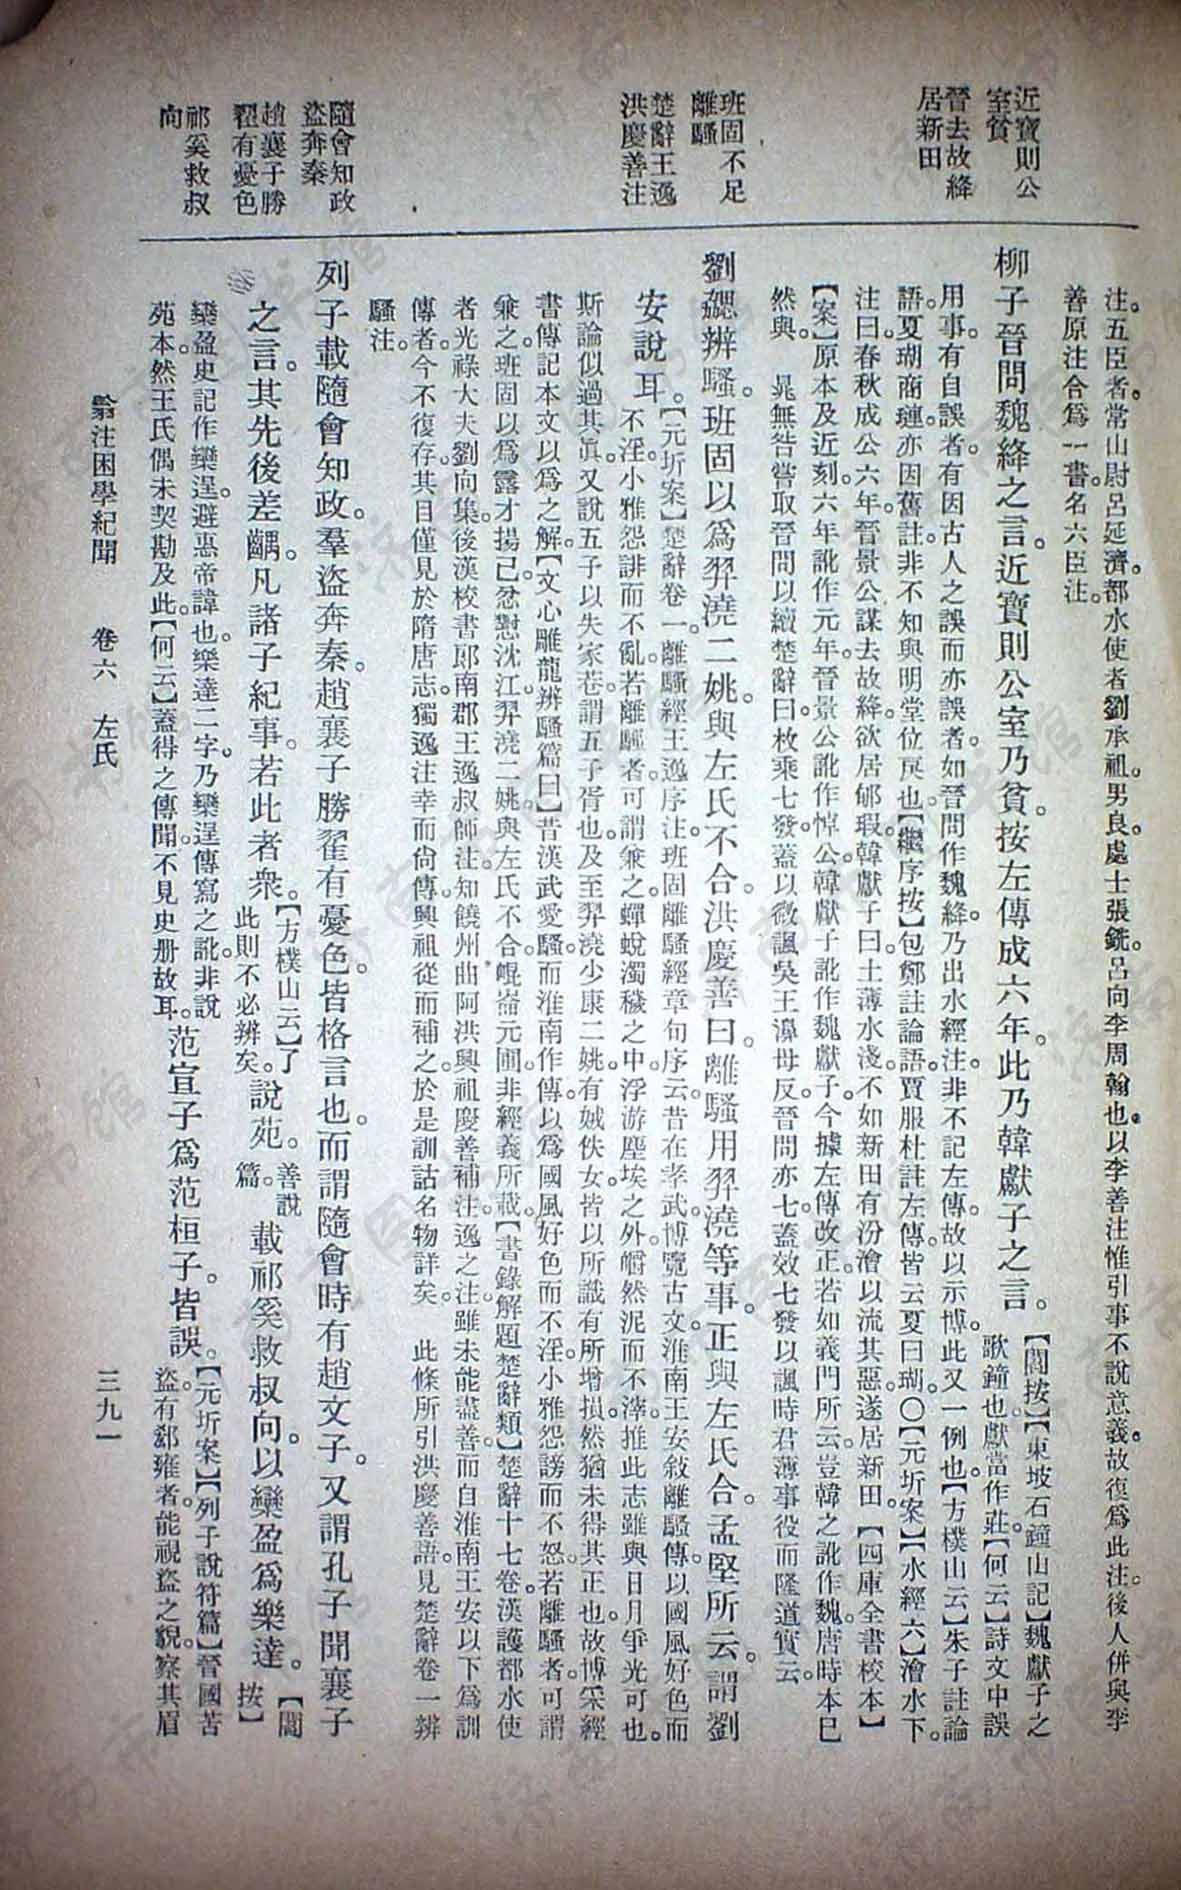 近寶則公
室貧
晉去故絳
居新田
班固不足
離騷
楚辭王逸
洪慶善注
隨會知政
盜奔秦
趙襄子勝
翟有憂色
祁奚救叔
向
注。五臣者。常山尉呂延濟。都水使者劉承祖。男良。處士張銑。呂向李周翰也。以李善注惟引事不說意義。故復爲此注。後人併與李
善原注合爲一書。名六臣注。
柳子晉問魏絳之言。近寶則公室乃貧。按左傳成六年。此乃韓獻子之言。【閻按】【東坡石鐘山記】魏獻子之
歌鐘也。獻當作莊。【何云】詩文中誤
用事。有自誤者。有因古人之誤而亦誤者。如晉問作魏絳。乃出水經注。非不記左傳。故以示博。此又一例也。【方樸山云】朱子註論
語。夏瑚商璉。亦因舊註。非不知與明堂位戾也。【繼序按】包鄭註論語。賈服杜註左傳。皆云夏曰瑚。〇【元圻案】【水經六】澮水下。
注曰。春秋成公六年。晉景公謀去故絳。欲居郇瑕。韓獻子曰。土薄水淺。不如新田有汾澮以流其惡。遂居新田。【四庫全書校本】
【案】原本及近刻。六年訛作元年。晉景公訛作悼公。韓獻子訛作魏獻子。今據左傳改正。若如義門所云。豈韓之訛作魏。唐時本已
然與。　晁無咎嘗取晉問以續楚辭。曰。枚乘七發。蓋以微諷吳王濞毋反。晉問亦七。蓋效七發以諷時君薄事役而隆道實云。
劉勰辨騷。班固以爲羿澆二姚。與左氏不合。洪慶善曰。離騷用羿澆等事。正與左氏合。孟堅所云。謂劉
安說耳。【元圻案】楚辭卷一。離騷經王逸序注。班固離騷經章句序云。昔在孝武。博覽古文。淮南王安敘離騷傳。以國風好色而
不淫。小雅怨誹而不亂。若離騷者。可謂兼之。蟬蛻濁穢之中。浮游塵埃之外。皭然泥而不滓。推此志雖與日月爭光可也。
斯論似過其眞。又說五子以失家巷。謂五子胥也。及至羿澆少康二姚。有娀佚女。皆以所識有所增損。然猶未得其正也。故博采經
書傳記本文以爲之解。【文心雕龍辨騷篇曰】昔漢武愛騷。而淮南作傳。以爲國風好色而不淫。小雅怨謗而不怒。若離騷者。可謂
兼之。班固以爲露才揚己。忿懟沈江。羿澆二姚。與左氏不合。崐崙元圃。非經義所載。【書錄解題楚辭類】楚辭十七卷。漢護都水使
者光祿大夫劉向集。後漢校書郎南郡王逸叔師注。知饒州曲阿洪興祖慶善補注。逸之注雖未能盡善。而自淮南王安以下爲訓
傳者。今不復存。其目僅見於隋唐志。獨逸注幸而尙傳。興祖從而補之。於是訓詁名物詳矣。　此條所引洪慶善語。見楚辭卷一辨
騷注。
列子載隨會知政。羣盜奔秦。趙襄子勝翟有憂色。皆格言也。而謂隨會時有趙文子。又謂孔子聞襄子
之言。其先後差齲。凡諸子紀事。若此者衆。【方樸山云】了
此則不必辨矣。說苑。善說
篇。載祁奚救叔向。以欒盈爲樂達。【閻
按】
欒盈史記作欒逞。避惠帝諱也。樂達二字。乃欒逞傳寫之訛。非說
苑本然。王氏偶未契勘及此。【何云】蓋得之傳聞。不見史册故耳。范宣子爲范桓子。皆誤。【元圻案】【列子說符篇】晉國苦
盜。有郄雍者。能視盜之貌。察其眉
翁注困學紀聞　卷六　左氏　三九一